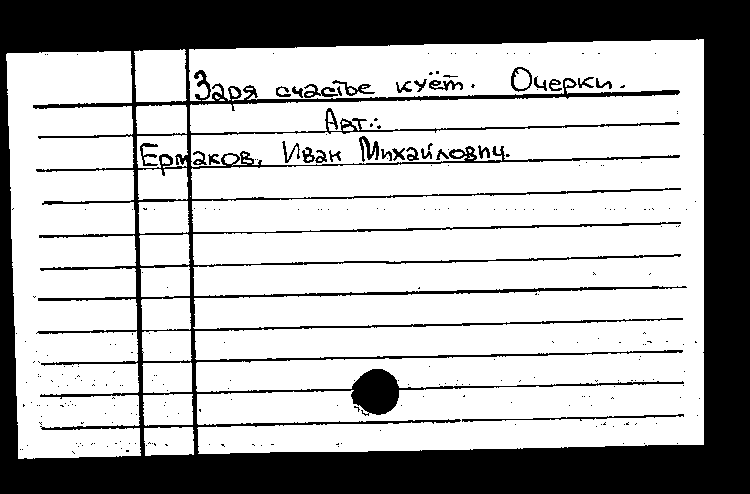 Заря счастье куёт. Очерки.
Авт.:
Ермаков, Иван Михайлович.